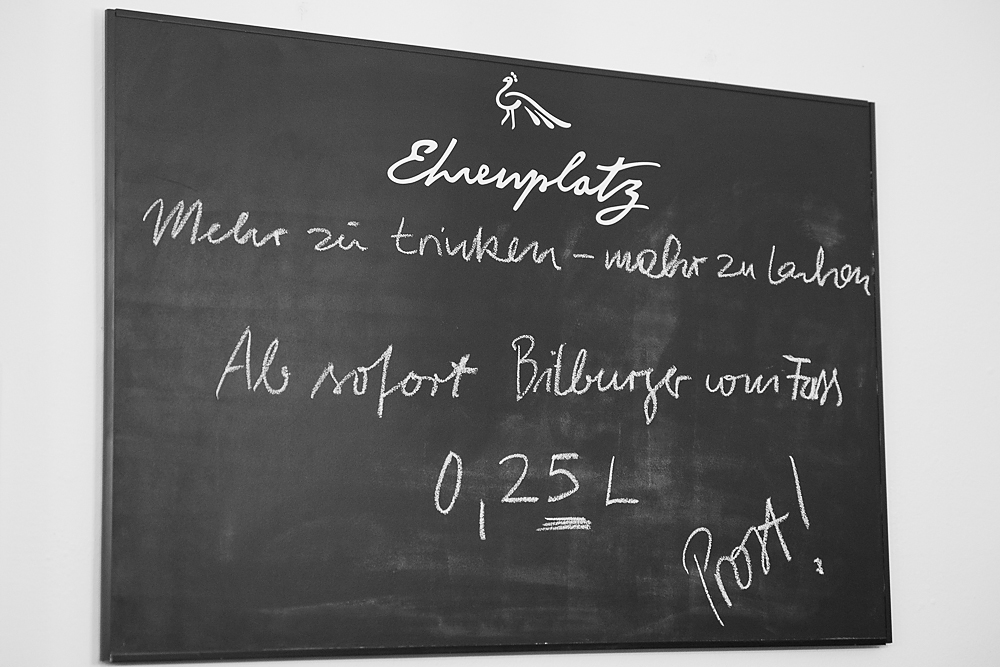 Ehrenplatz
Mehr zu trinken - mehr zu Lachen
Ab sofort Bitburger vom Fass
0,25 L
Prost!